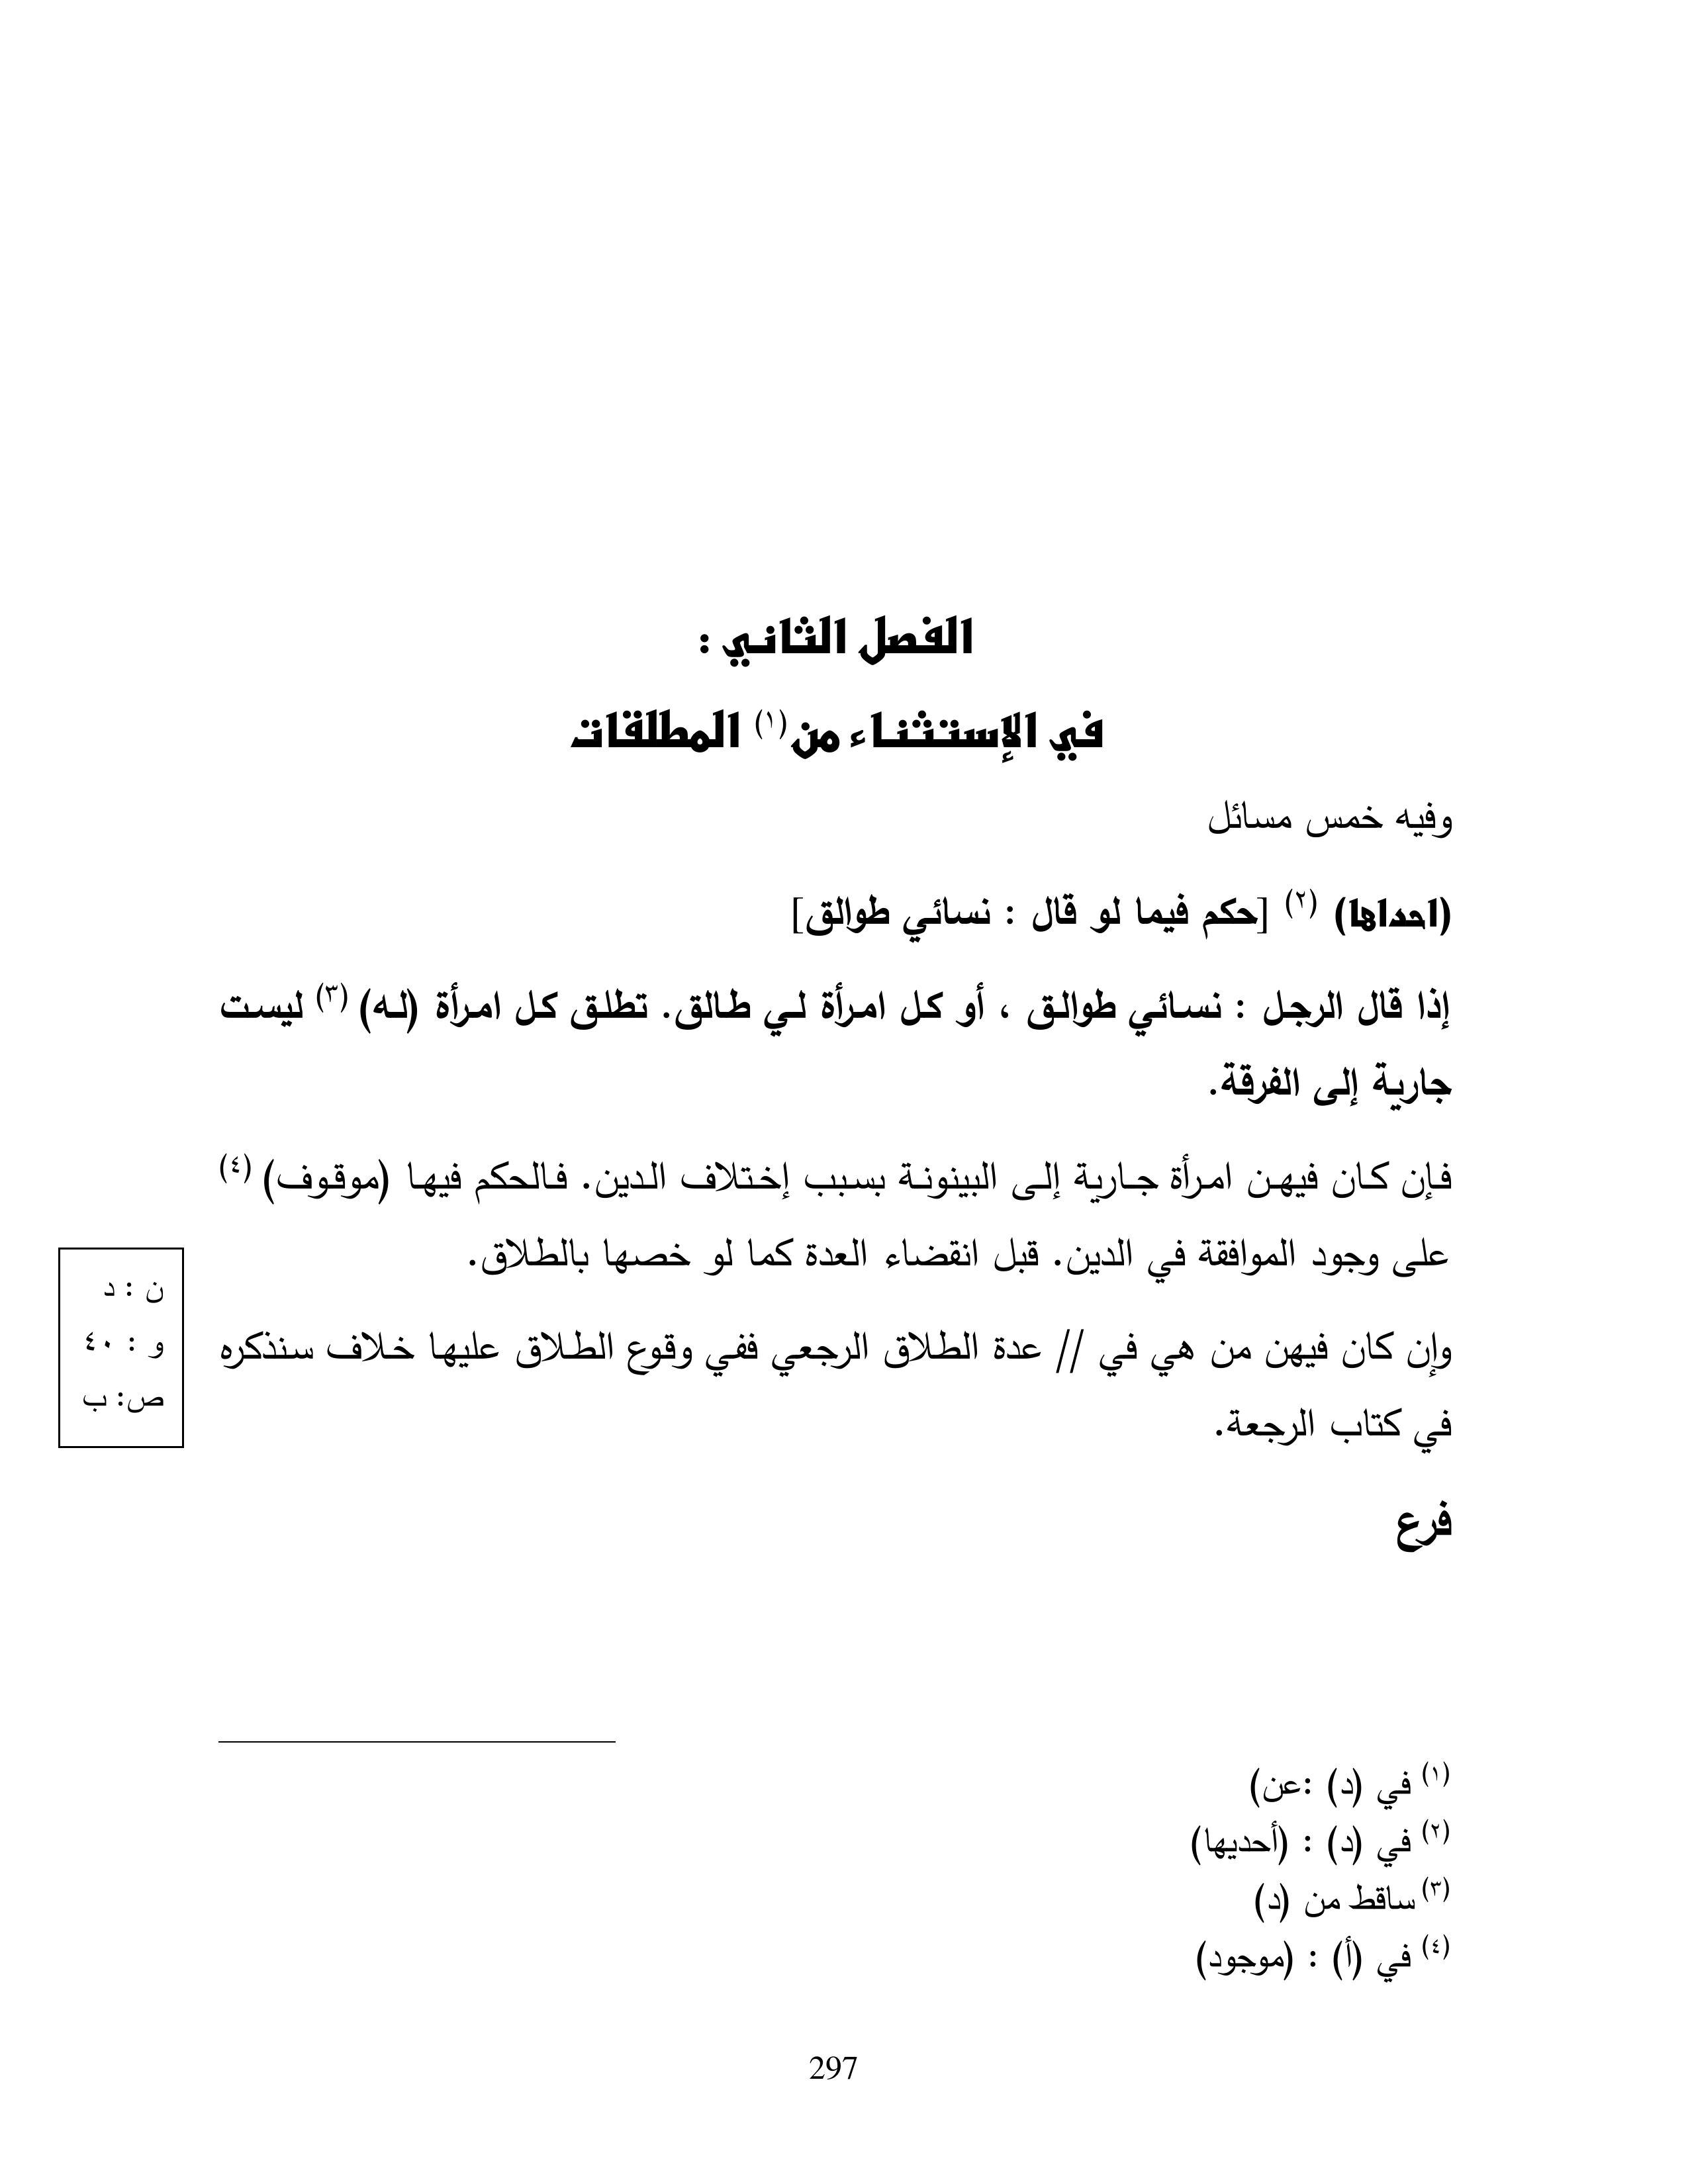 الفصل الثاني :
في الإستثناء من (١) المطلقات
وفيه خمس مسائل
(احداها) (٢) [حكم فيما لو قال : نسائي طوالق]
إذا قال الرجل : نسائي طوالق ، أو كل امرأة لي طالق. تطلق كل امرأة (له) (٣) ليست
جارية إلى الفرقة.
فإن كان فيهن امرأة جارية إلى البينونة بسبب إختلاف الدين. فالحكم فيها (موقوف) (٤)
على وجود الموافقة في الدين. قبل انقضاء العدة كما لو خصها بالطلاق.
وإن كان فيهن من هي في // عدة الطلاق الرجعي ففي وقوع الطلاق عليها خلاف سنذكره
في كتاب الرجعة.
ن : د
و : ٤٠
ص: ب
فرع
(١) في (د) :عن)
(٢) في (د) : (أحديها)
(٣) ساقط من (د)
(٤) في (أ) : (موجود)
297